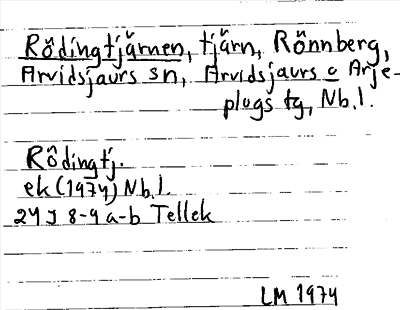 Rödingtjärnen, tjärn, Rönnberg,
Arvidsjaurs sn, Arvidsjaurs o Arje-
plogs tg, Nb.l.
Rödingtj.
ek (1974) Nb.l.
24J 8-9 a-b Tellek
LM 1974